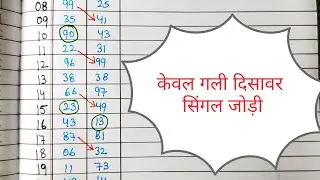 08 99 25
09 35 41
10 90 43
11 22 31
12 96 99
13 38 38
14 66 97
15 23 49
16 43 13
17 87 81
18 06 32
19 11 73
केवल गली दिसावर
सिंगल जोड़ी